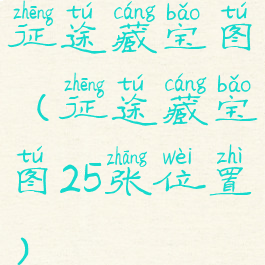 zhēng tú cáng bǎo tú
征途藏宝图
zhēng tú cáng bǎo
（征途藏宝
tú zhāng wèi zhì
图25张位置
）